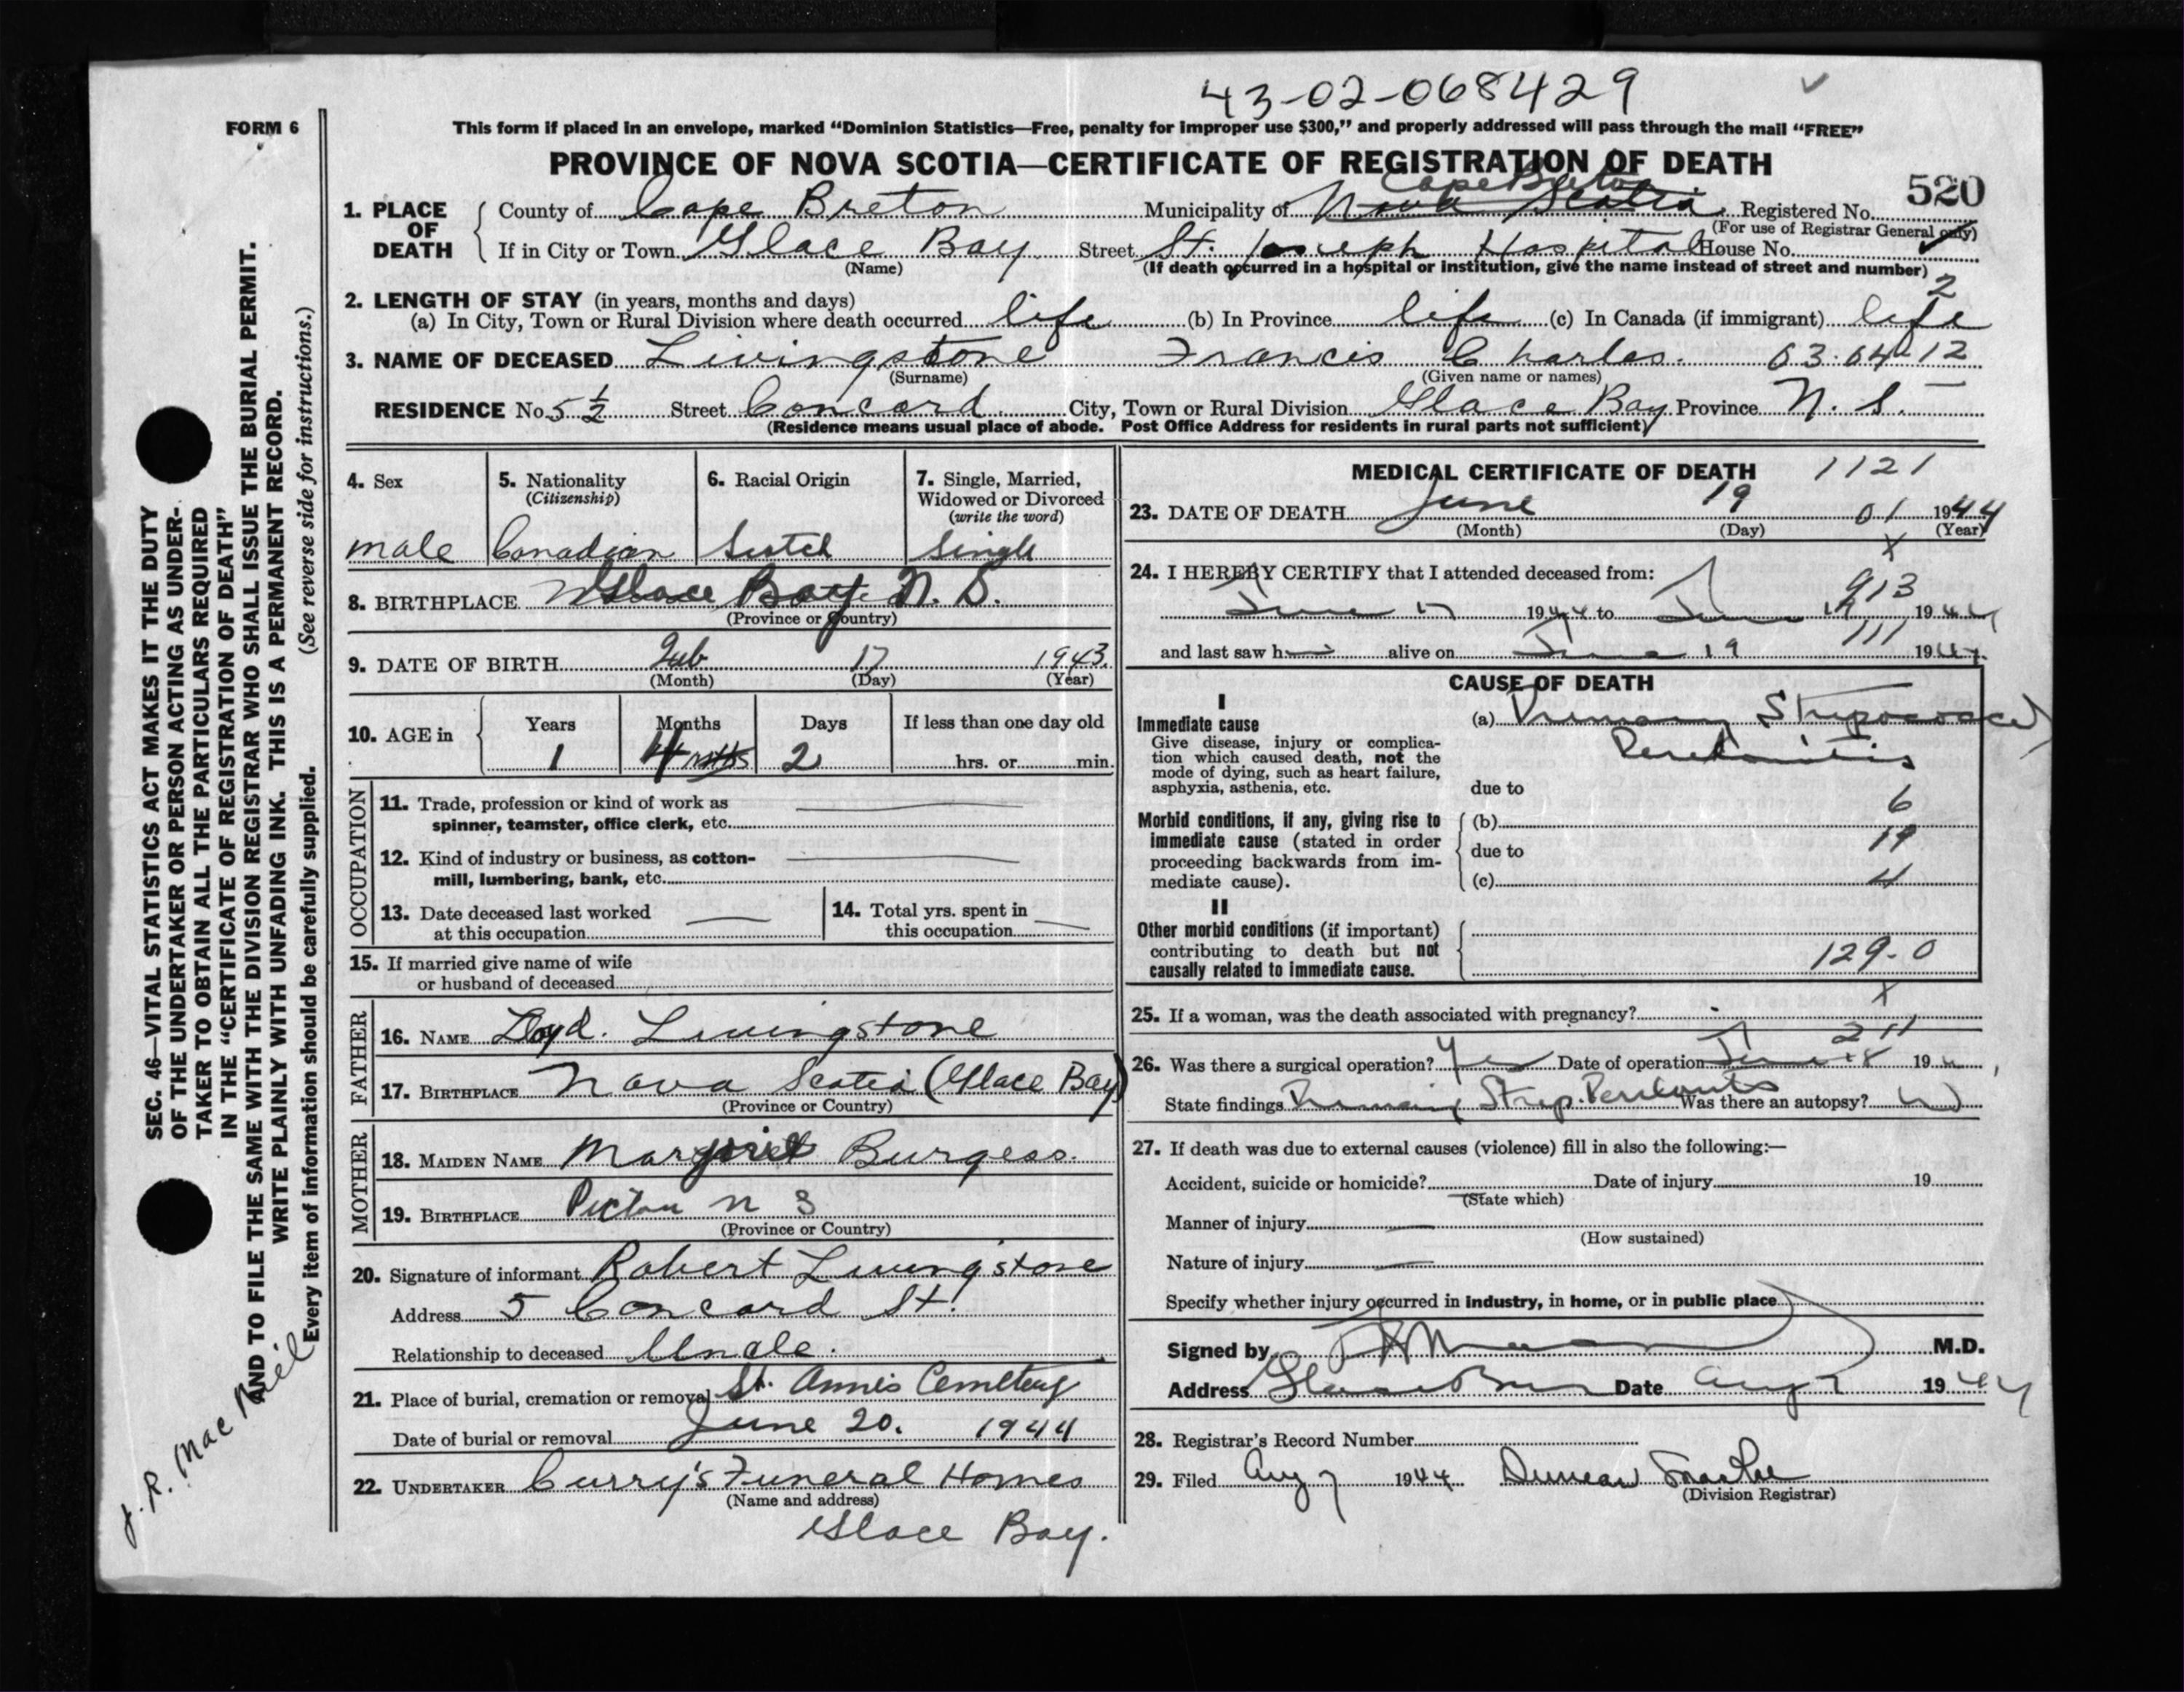 43-02-068429
FORM 6
This form if placed in an envelope, marked "Dominion Statistics—Free, penalty for improper use $300," and properly addressed will pass through the mail "FREE"
PROVINCE OF NOVA SCOTIA—CERTIFICATE OF REGISTRATION OF DEATH
520
1. PLACE OF DEATH { County of Cape Breton Municipality of Nova Scotia Cape Breton Registered No.
(For use of Registrar General only)
If in City or Town Glace Bay Street St. Joseph Hospital House No.
(Name) (If death occurred in a hospital or institution, give the name instead of street and number)
2
2. LENGTH OF STAY (in years, months and days)
(a) In City, Town or Rural Division where death occurred life (b) In Province life (c) In Canada (if immigrant) life
3. NAME OF DECEASED Livingstone Francis Charles. 03.04-12
(Surname) (Given name or names)
RESIDENCE No. 5 1/2 Street Concord City, Town or Rural Division Glace Bay Province N. S.
(Residence means usual place of abode. Post Office Address for residents in rural parts not sufficient)
4. Sex 5. Nationality (Citizenship) 6. Racial Origin 7. Single, Married, Widowed or Divorced (write the word)
male Canadian Scotch Single
8. BIRTHPLACE Glace Bay N. S.
(Province or Country)
9. DATE OF BIRTH Feb 17 1943
(Month) (Day) (Year)
10. AGE in { Years Months Days If less than one day old
1 4 mths 2 hrs. or min.
OCCUPATION
11. Trade, profession or kind of work as
spinner, teamster, office clerk, etc.
12. Kind of industry or business, as cotton-
mill, lumbering, bank, etc.
13. Date deceased last worked at this occupation 14. Total yrs. spent in this occupation
15. If married give name of wife
or husband of deceased
FATHER
16. NAME Loyd. Livingstone
17. BIRTHPLACE Nova Scotia (Glace Bay)
(Province or Country)
MOTHER
18. MAIDEN NAME Margaret Burgess.
19. BIRTHPLACE Pictou N S
(Province or Country)
20. Signature of informant Robert Livingstone
Address 5 Concord St.
Relationship to deceased Uncle.
21. Place of burial, cremation or removal St. Anns Cemetery
Date of burial or removal June 20. 1944
22. UNDERTAKER Curry's Funeral Homes
(Name and address)
Glace Bay.
MEDICAL CERTIFICATE OF DEATH 1121
23. DATE OF DEATH June 19 01 1944
(Month) (Day) (Year)
X
24. I HEREBY CERTIFY that I attended deceased from:
913
June 17 1944 to June 19 1944
111
and last saw h alive on June 19 1944
CAUSE OF DEATH
I
Immediate cause (a) Primary Strepococcal
Peritonitis
Give disease, injury or complica-
tion which caused death, not the
mode of dying, such as heart failure,
asphyxia, asthenia, etc.
due to
6
Morbid conditions, if any, giving rise to (b)
immediate cause (stated in order due to 19
proceeding backwards from im-
mediate cause). (c) 4
II
Other morbid conditions (if important)
contributing to death but not
causally related to immediate cause. 129-0
X
25. If a woman, was the death associated with pregnancy?
211
26. Was there a surgical operation? Yes Date of operation June 18 194
State findings Primary Strep. Peritonitis Was there an autopsy? No
27. If death was due to external causes (violence) fill in also the following:—
Accident, suicide or homicide? Date of injury 19
(State which)
Manner of injury
(How sustained)
Nature of injury
Specify whether injury occurred in industry, in home, or in public place
Signed by M.D.
Address Glace Bay Date Aug 7 1944
28. Registrar's Record Number
29. Filed Aug 7 1944 Duncan
(Division Registrar)
SEC. 46—VITAL STATISTICS ACT MAKES IT THE DUTY
OF THE UNDERTAKER OR PERSON ACTING AS UNDER-
TAKER TO OBTAIN ALL THE PARTICULARS REQUIRED
IN THE "CERTIFICATE OF REGISTRATION OF DEATH"
AND TO FILE THE SAME WITH THE DIVISION REGISTRAR WHO SHALL ISSUE THE BURIAL PERMIT.
WRITE PLAINLY WITH UNFADING INK. THIS IS A PERMANENT RECORD.
Every item of information should be carefully supplied. (See reverse side for instructions.)
J. R. Mac Neil